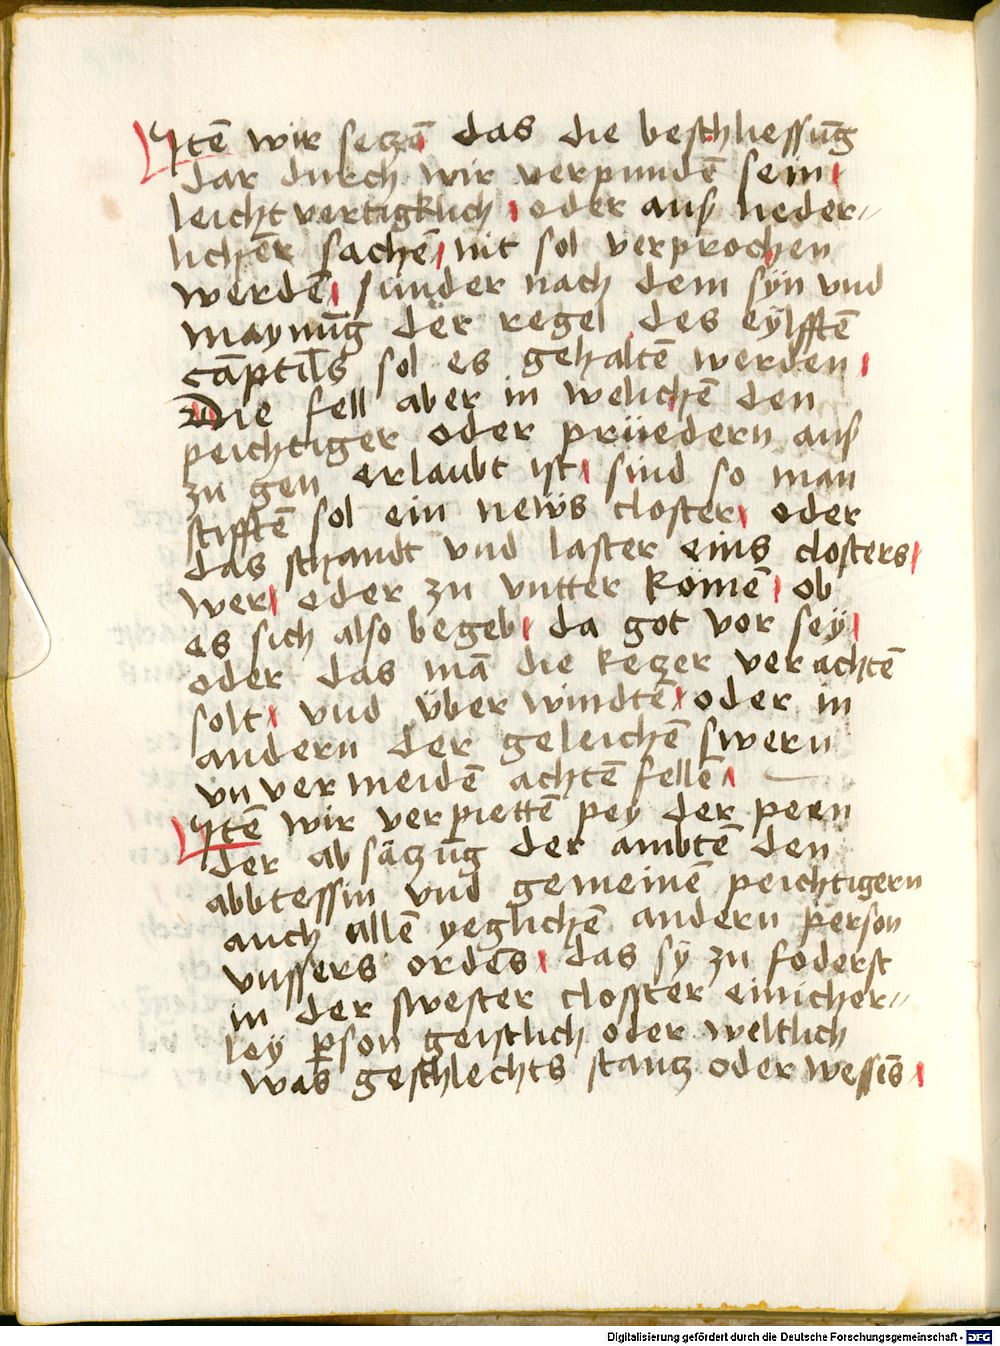 Itē wir seczē das die beschliessūg
dar durch wir verpundē sein
leicht vertigklich oder aus lieder//
lichēr sachē nit sol verprochen
werdē sunder nach dem sÿn vnd
maynūg der regel des eÿlfftē
cāptils sol es gehaltē werden
Die fell aber in welichē den
peichtiger oder prüedern aus
zu gen erlaubt ist sind so man
stifftē sol ein news closter oder
das schandt vnd laster eins closters
wer oder zu vntter komē ob
es sich also begeb da got vor seÿ
oder das mā die keczer verachtē
solt vnd über windtē oder in
andern der geleichē swern
vnvermeidē achtē fellē
Itē wir verpiettē peÿ der peen
der absäczūg der ambtē den
abbtessin vnd gemeinē peichtigern
auch allē yeglichē andern person
vnssers ordēs das sÿ zu foderst
in der swester closster einicher//
leÿ p̲son geistlich oder weltlich
was geschlechts stancz oder wessēs
Digitalisierung gefördert durch die Deutsche Forschungsgemeinschaft - DFG